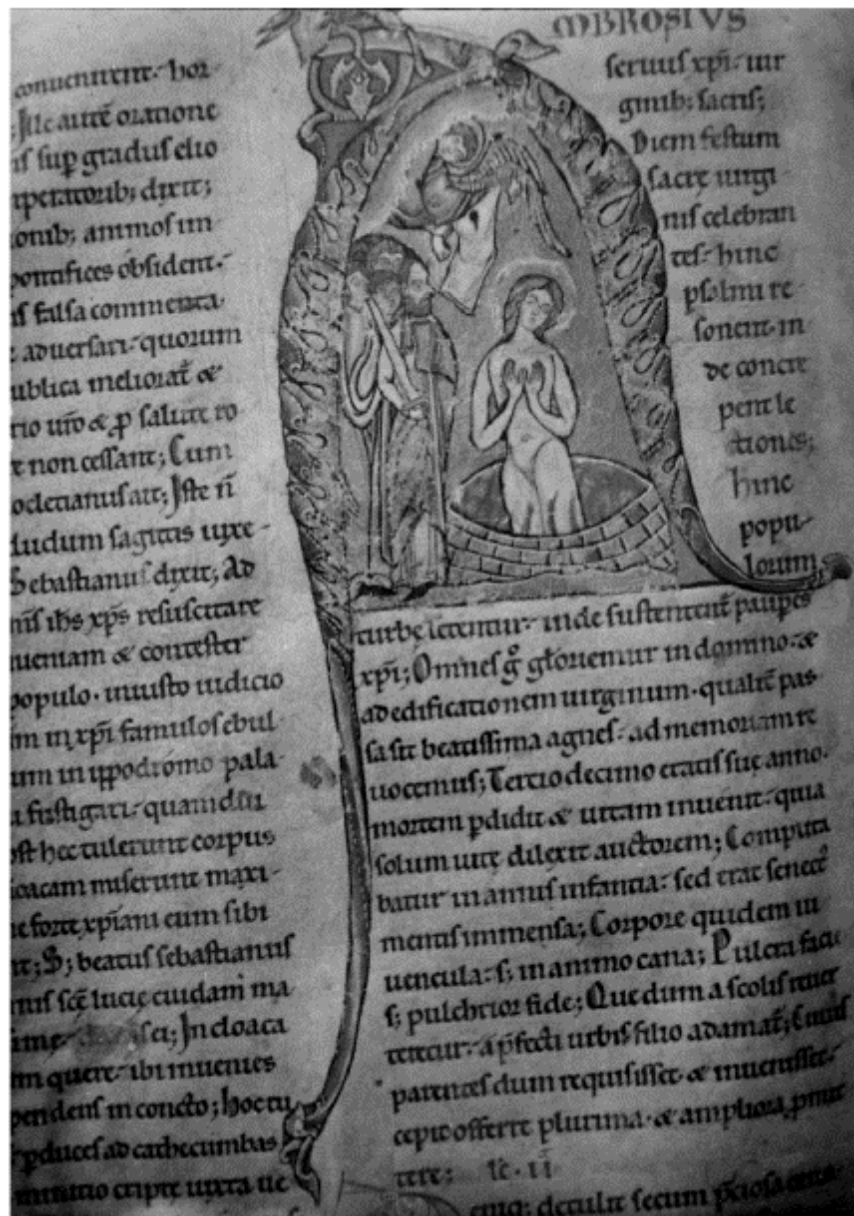 conuenirent. hor
; Ille autē oratione
is sup gradus elio
iperatorib; dixit;
onib; animos im
pontifices obsident.
is falsa commenta
aduersari. quorum
ublica meliorat̄ &
rio uro & p salute ro
e non cessant; Cum
ocletianus ait; Iste n̄
dudum sagittis uxe-
Sebastianus dixit; Ad
nis ihs xp̄s resuscitare
ueniam & contester
populo. iniusto iudicio
m in xp̄i famulos ebul
um in ippodromo pala
a fustigari. quamdiu
ost hec tulerunt corpus
loacam miserunt maxi-
ne forte xp̄iani eum sibi
nt; S; beatus sebastianus
nis scē lucie cuidam ma
sei; In cloaca
m quere. ibi inuenies
pendens in concto; hoc tu
pduces ad cathecumbas
minitio cripte iuxta ue
MBROSIVS
seruus xp̄i. uir
ginib; sacris;
Diem festum
sacrę uirgi
nis celebran
tes. hinc
psalmi re
sonent. in
de concre
pent le
ctiones;
hinc
popu-
lorum
turbę lętentur. inde sustentent̄ paupes
xp̄i; Omnes g° gloriemur in domino. &
ad edificationem uirginum. qualit̄ pas
sa sit beatissima agnes. ad memoriam re
uocemus; Tercio decimo etatis suę anno.
mortem pdidit & uitam inuenit. quia
solum uitę dilexit auctorem; Computa
batur in annis infantia. sed erat senect̄
mentis immensa; Corpore quidem iu
uencula. s; in animo cana; Pulcra facie
s; pulchrior fide; Que dum a scolis reuer
teretur. a p̄fecti urbis filio adamat̄; Cuius
parentes dum requisisset. & inuenisset.
cepit offerre plurima. & ampliora pmit
tere; lc. ii
eniq; detulit secum p̄ciosa